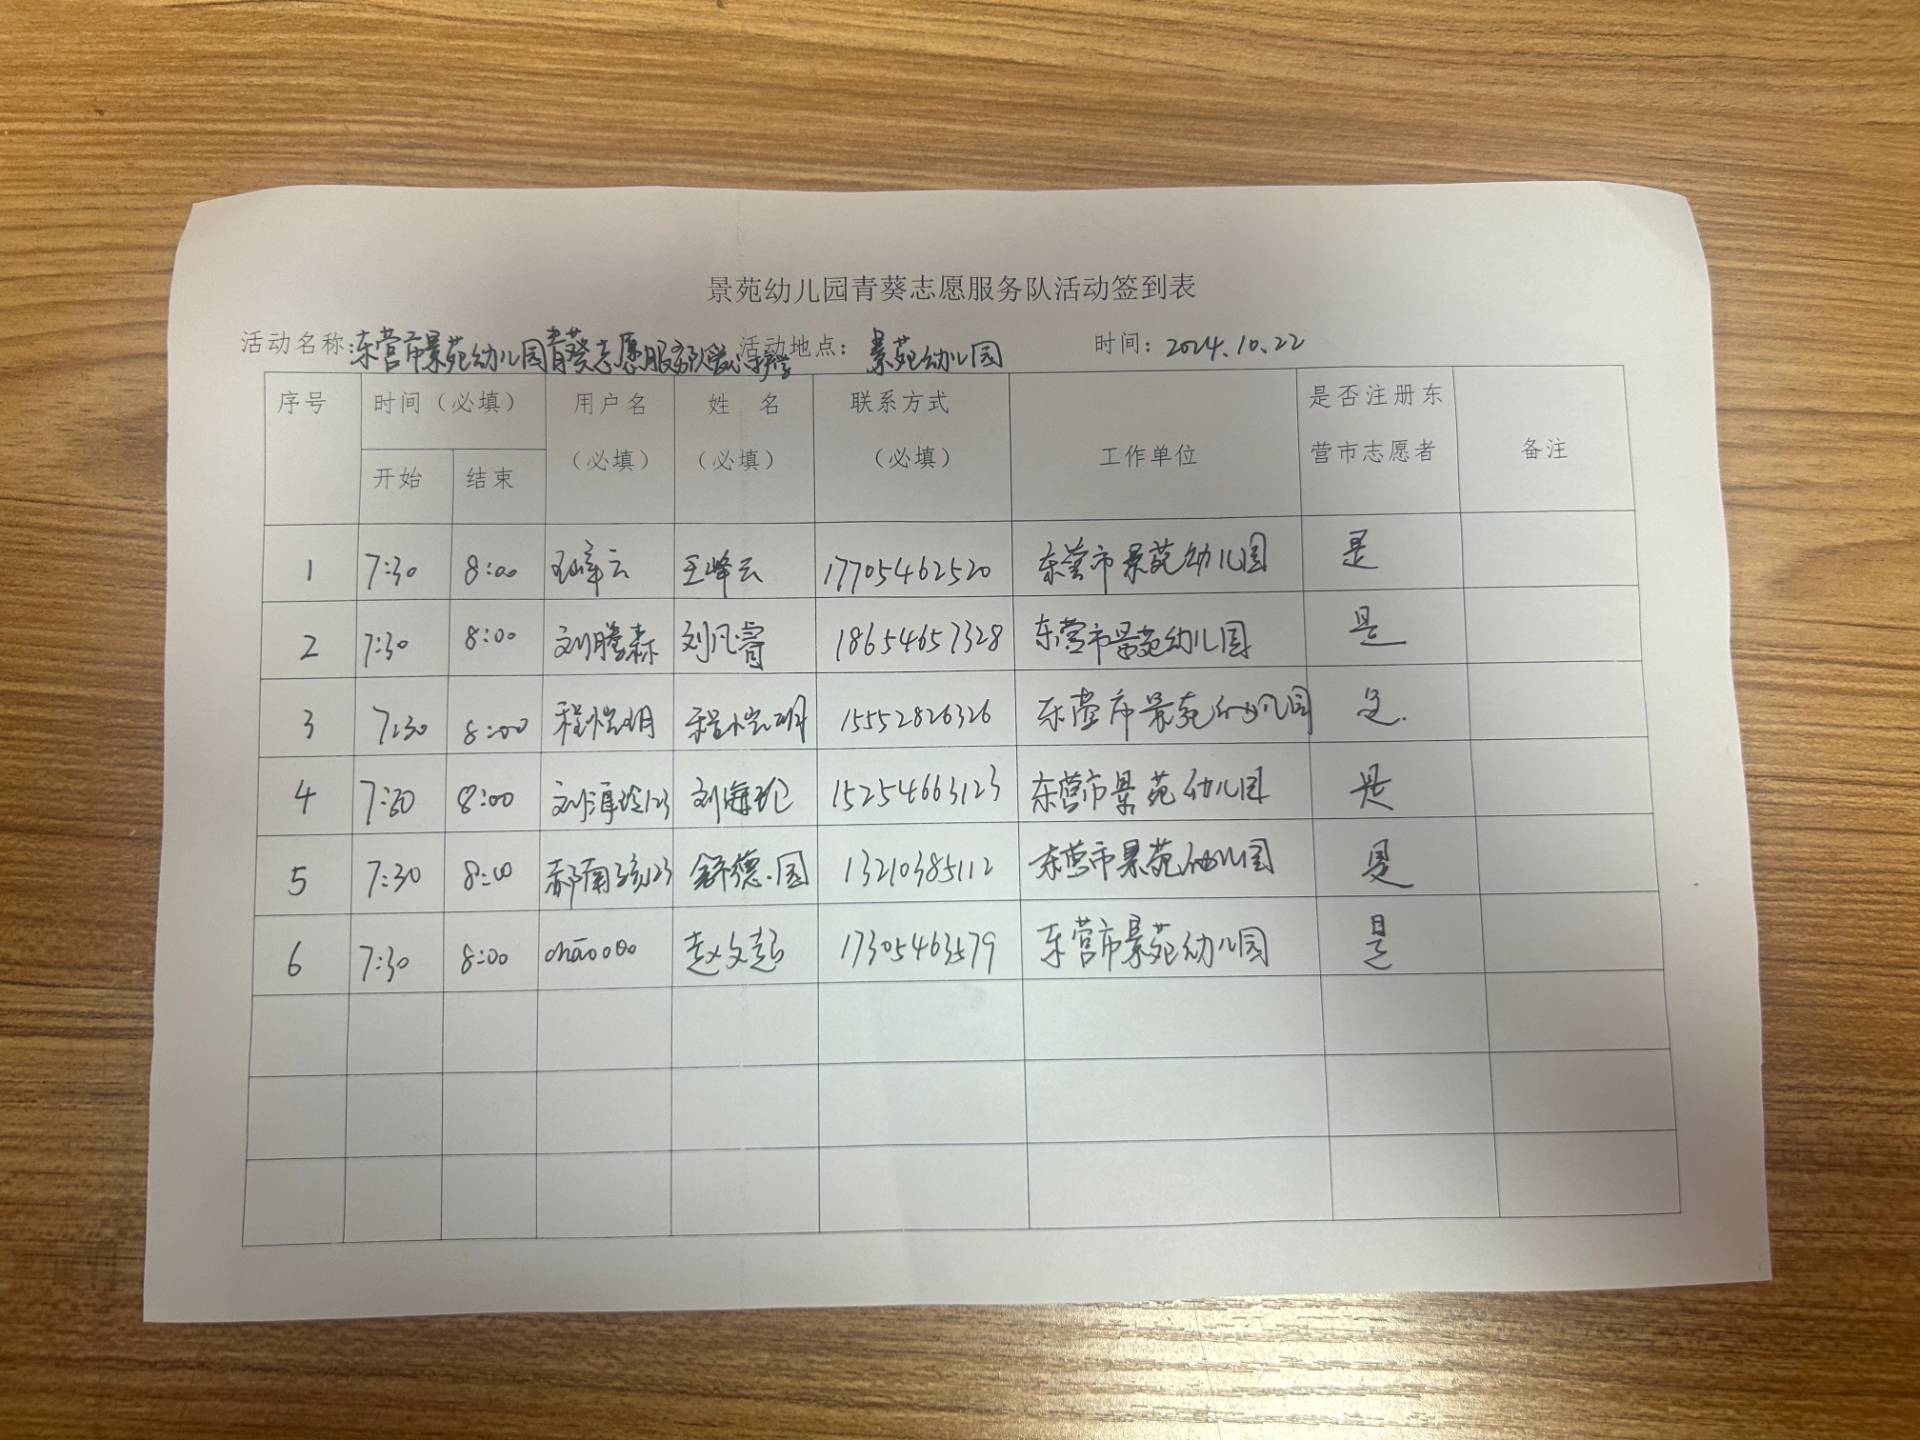 景苑幼儿园青葵志愿服务队活动签到表
活动名称:东营市景苑幼儿园青葵志愿服务队爱心护学 活动地点：景苑幼儿园 时间：2024.10.22
序号 时间（必填） 用户名（必填） 姓 名（必填） 联系方式（必填） 工作单位 是否注册东营市志愿者 备注
开始 结束
1 7:30 8:00 王峰云 王峰云 17705462520 东营市景苑幼儿园 是
2 7:30 8:00 刘腾森 刘凡睿 18654657328 东营市景苑幼儿园 是
3 7:30 8:00 15552826326 东营市景苑幼儿园 是.
4 7:30 8:00 15254663123 东营市景苑幼儿园 是
5 7:30 8:00 13210385112 东营市景苑幼儿园 是
6 7:30 8:00 赵文超 17305463579 东营市景苑幼儿园 是